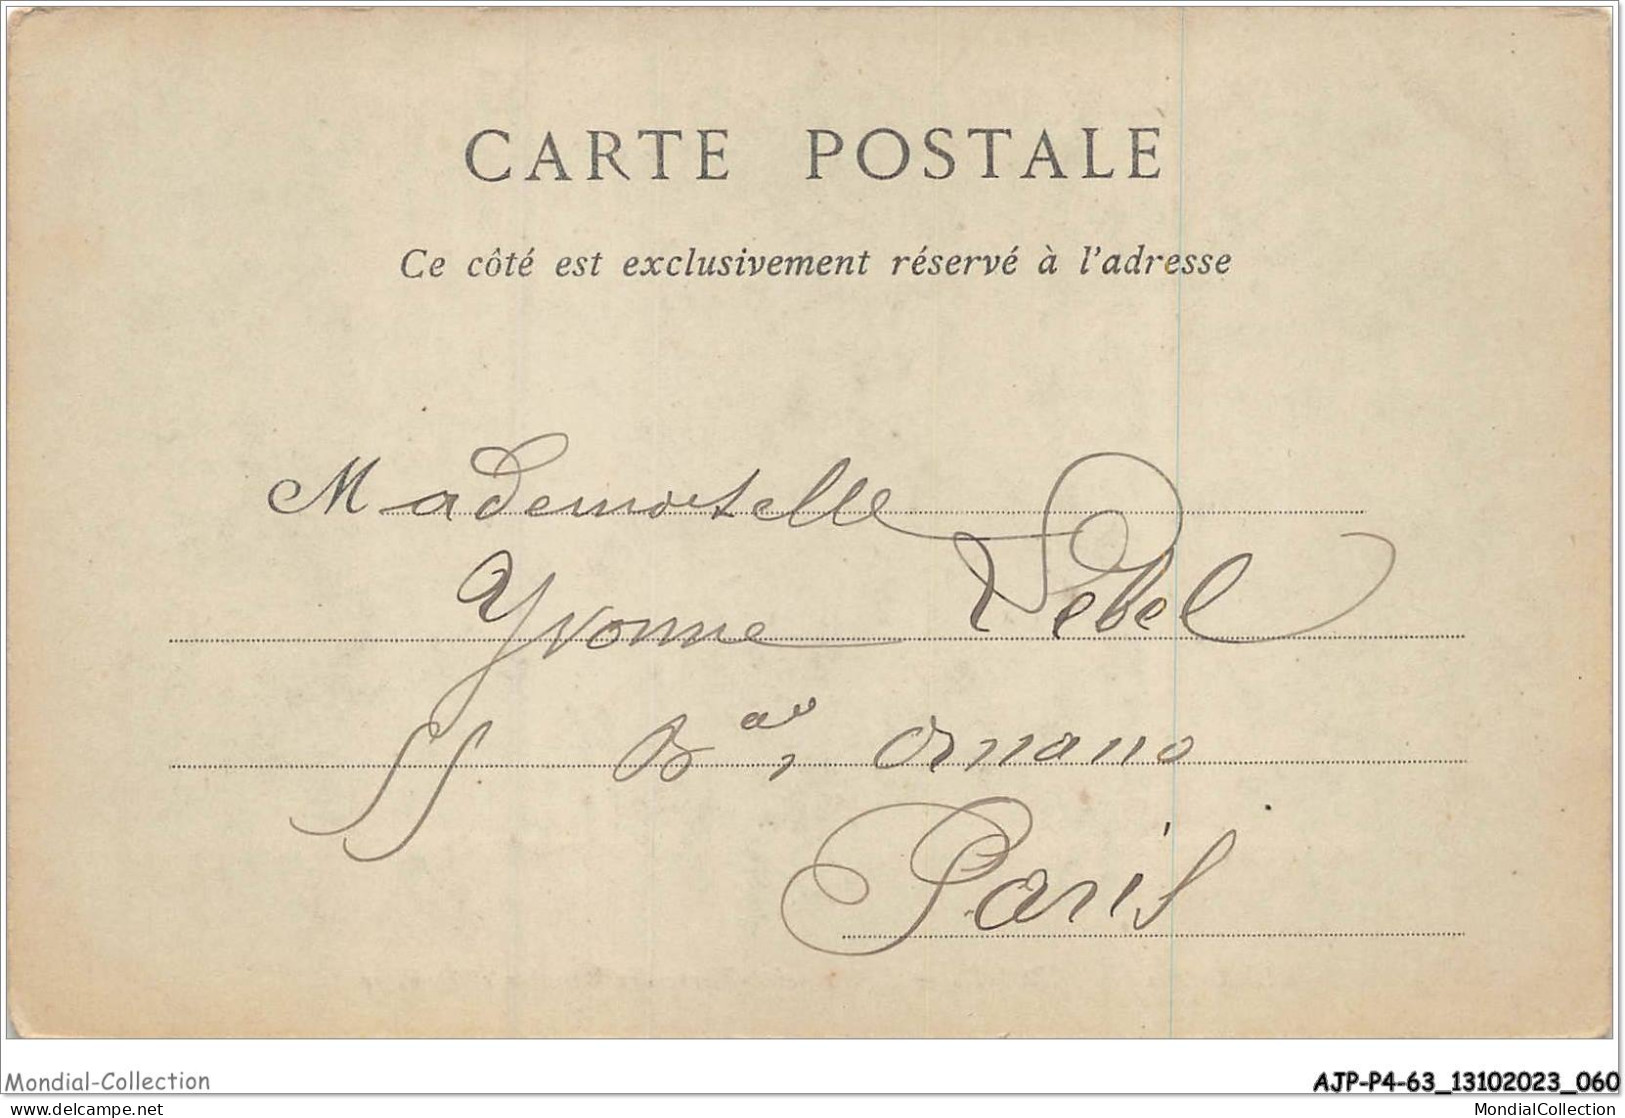 CARTE POSTALE
Ce côté est exclusivement réservé à l'adresse
Mademoiselle
Yvonne Lebel
55 Bd Ornano
Paris
Mondial-Collection
AJP-P4-63_13102023_060
www.delcampe.net
MondialCollection